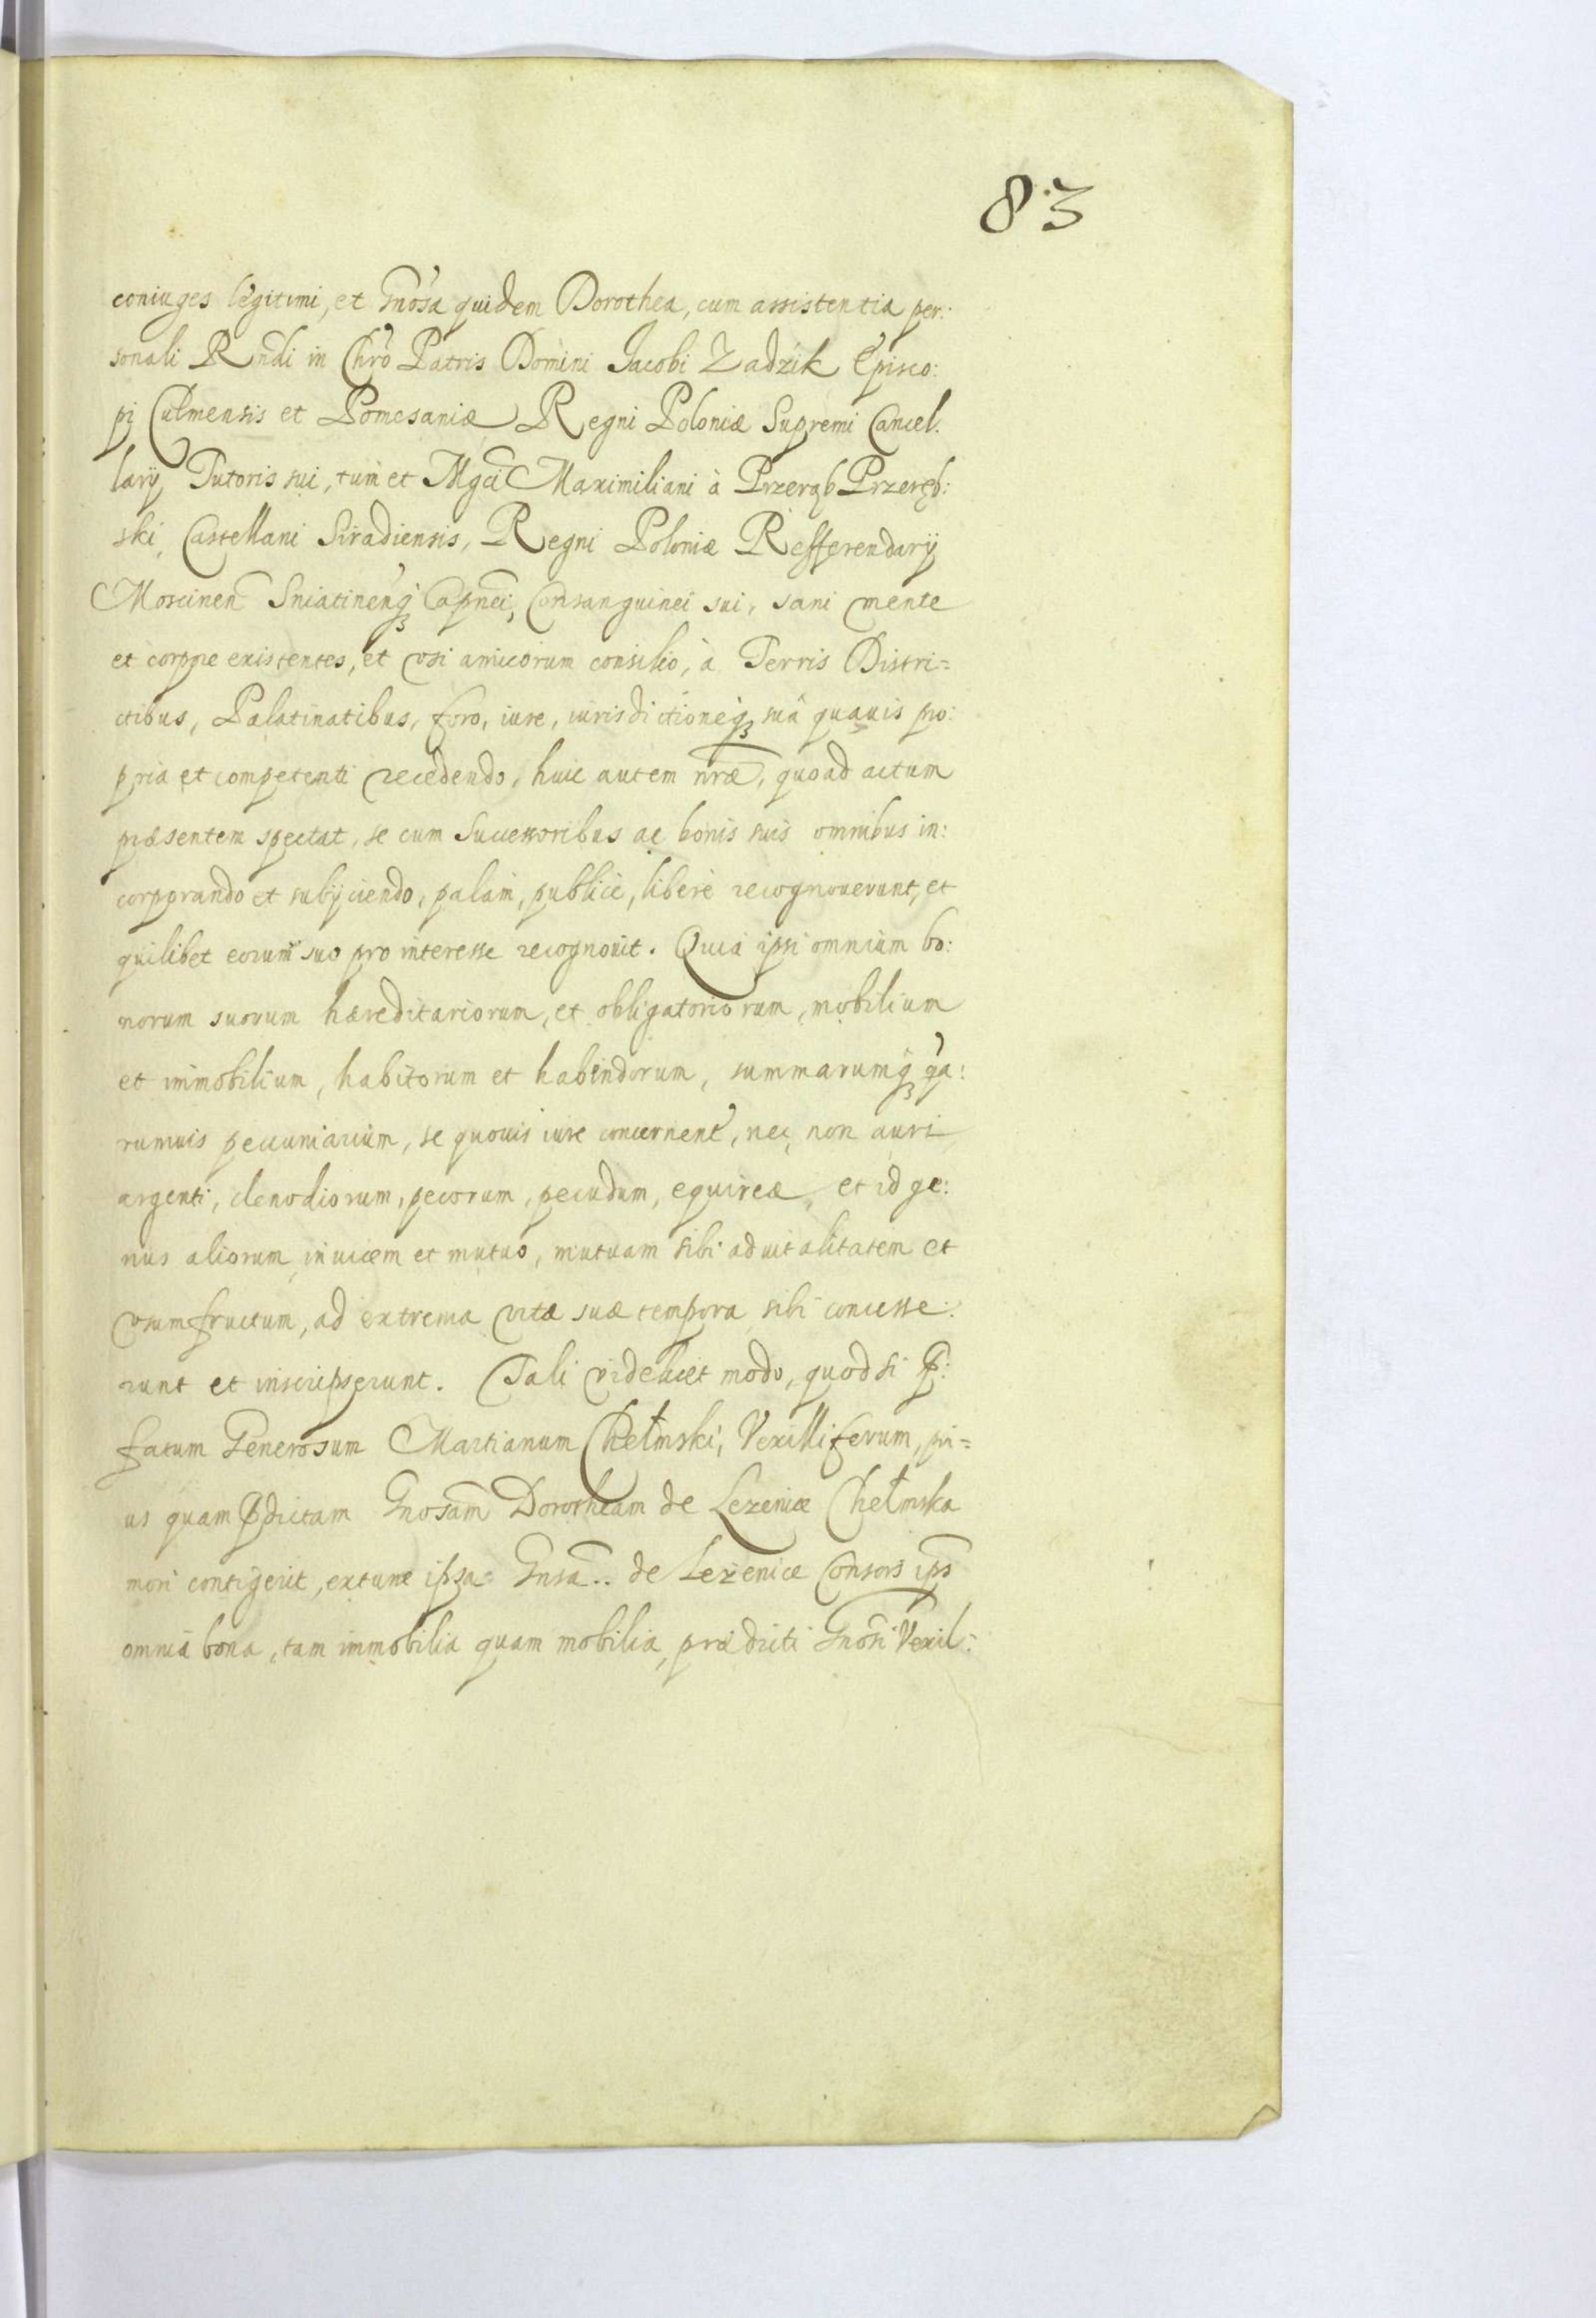 83
coniuges legitimi, et Gnosa quidem Dorothea, cum assistentia per:
sonali Rndi in Chro Patris Domini Jacobi Zadzik Episco:
pi Culmensis et Pomesaniæ Regni Poloniæ Supremi Cancel:
larij Tutoris sui, tum et Mgci Maximiliani à Przerąb Przeręb:
ski, Castellani Siradiensis, Regni Poloniæ Refferendarij
Moscinen Sniatinenq́ꝫ Capnei, Consanguinei sui, sani mente
et corpore existentes, et vsi amicorum consilio, à Terris Distri=
ctibus, Palatinatibus, foro, iure, iurisdictioneq́ꝫ suâ quauis pro:
pria et competenti recedendo, huic autem nræ, quoad actum
præsentem spectat, se cum Successoribus ac bonis suis omnibus in:
corporando et subijciendo, palam, publicè, liberè recognouerunt, et
quilibet eorum suo pro interesse recognouit. Quia ipsi omnium bo:
norum suorum hæreditariorum, et obligatoriorum, mobilium
et immobilium, habitorum et habendorum, summarumq́ꝫ qua:
rumuis pecuniarium, se quouis iure concernent, nec non auri
argenti, clenodiorum, pecorum, pecudum, equireæ, et id ge:
nus aliorum, inuicem et mutuo, mutuam sibi aduitalitatem et
vsumfructum, ad extrema vitæ suæ tempora sibi concesse:
runt et inscripserunt. Tali videlicet modo, quod si P:
fatum Generosum Martianum Chełmski, Vexilliferum, pri=
us quam Pdictam Gnosam Dorotheam de Lezenice Chełmska
mori contigerit, extunc ipsa Gnsa.. de Lezenice Consors ips
omnia bona, tam immobilia quam mobilia, prædicti Gnosi Vexil: